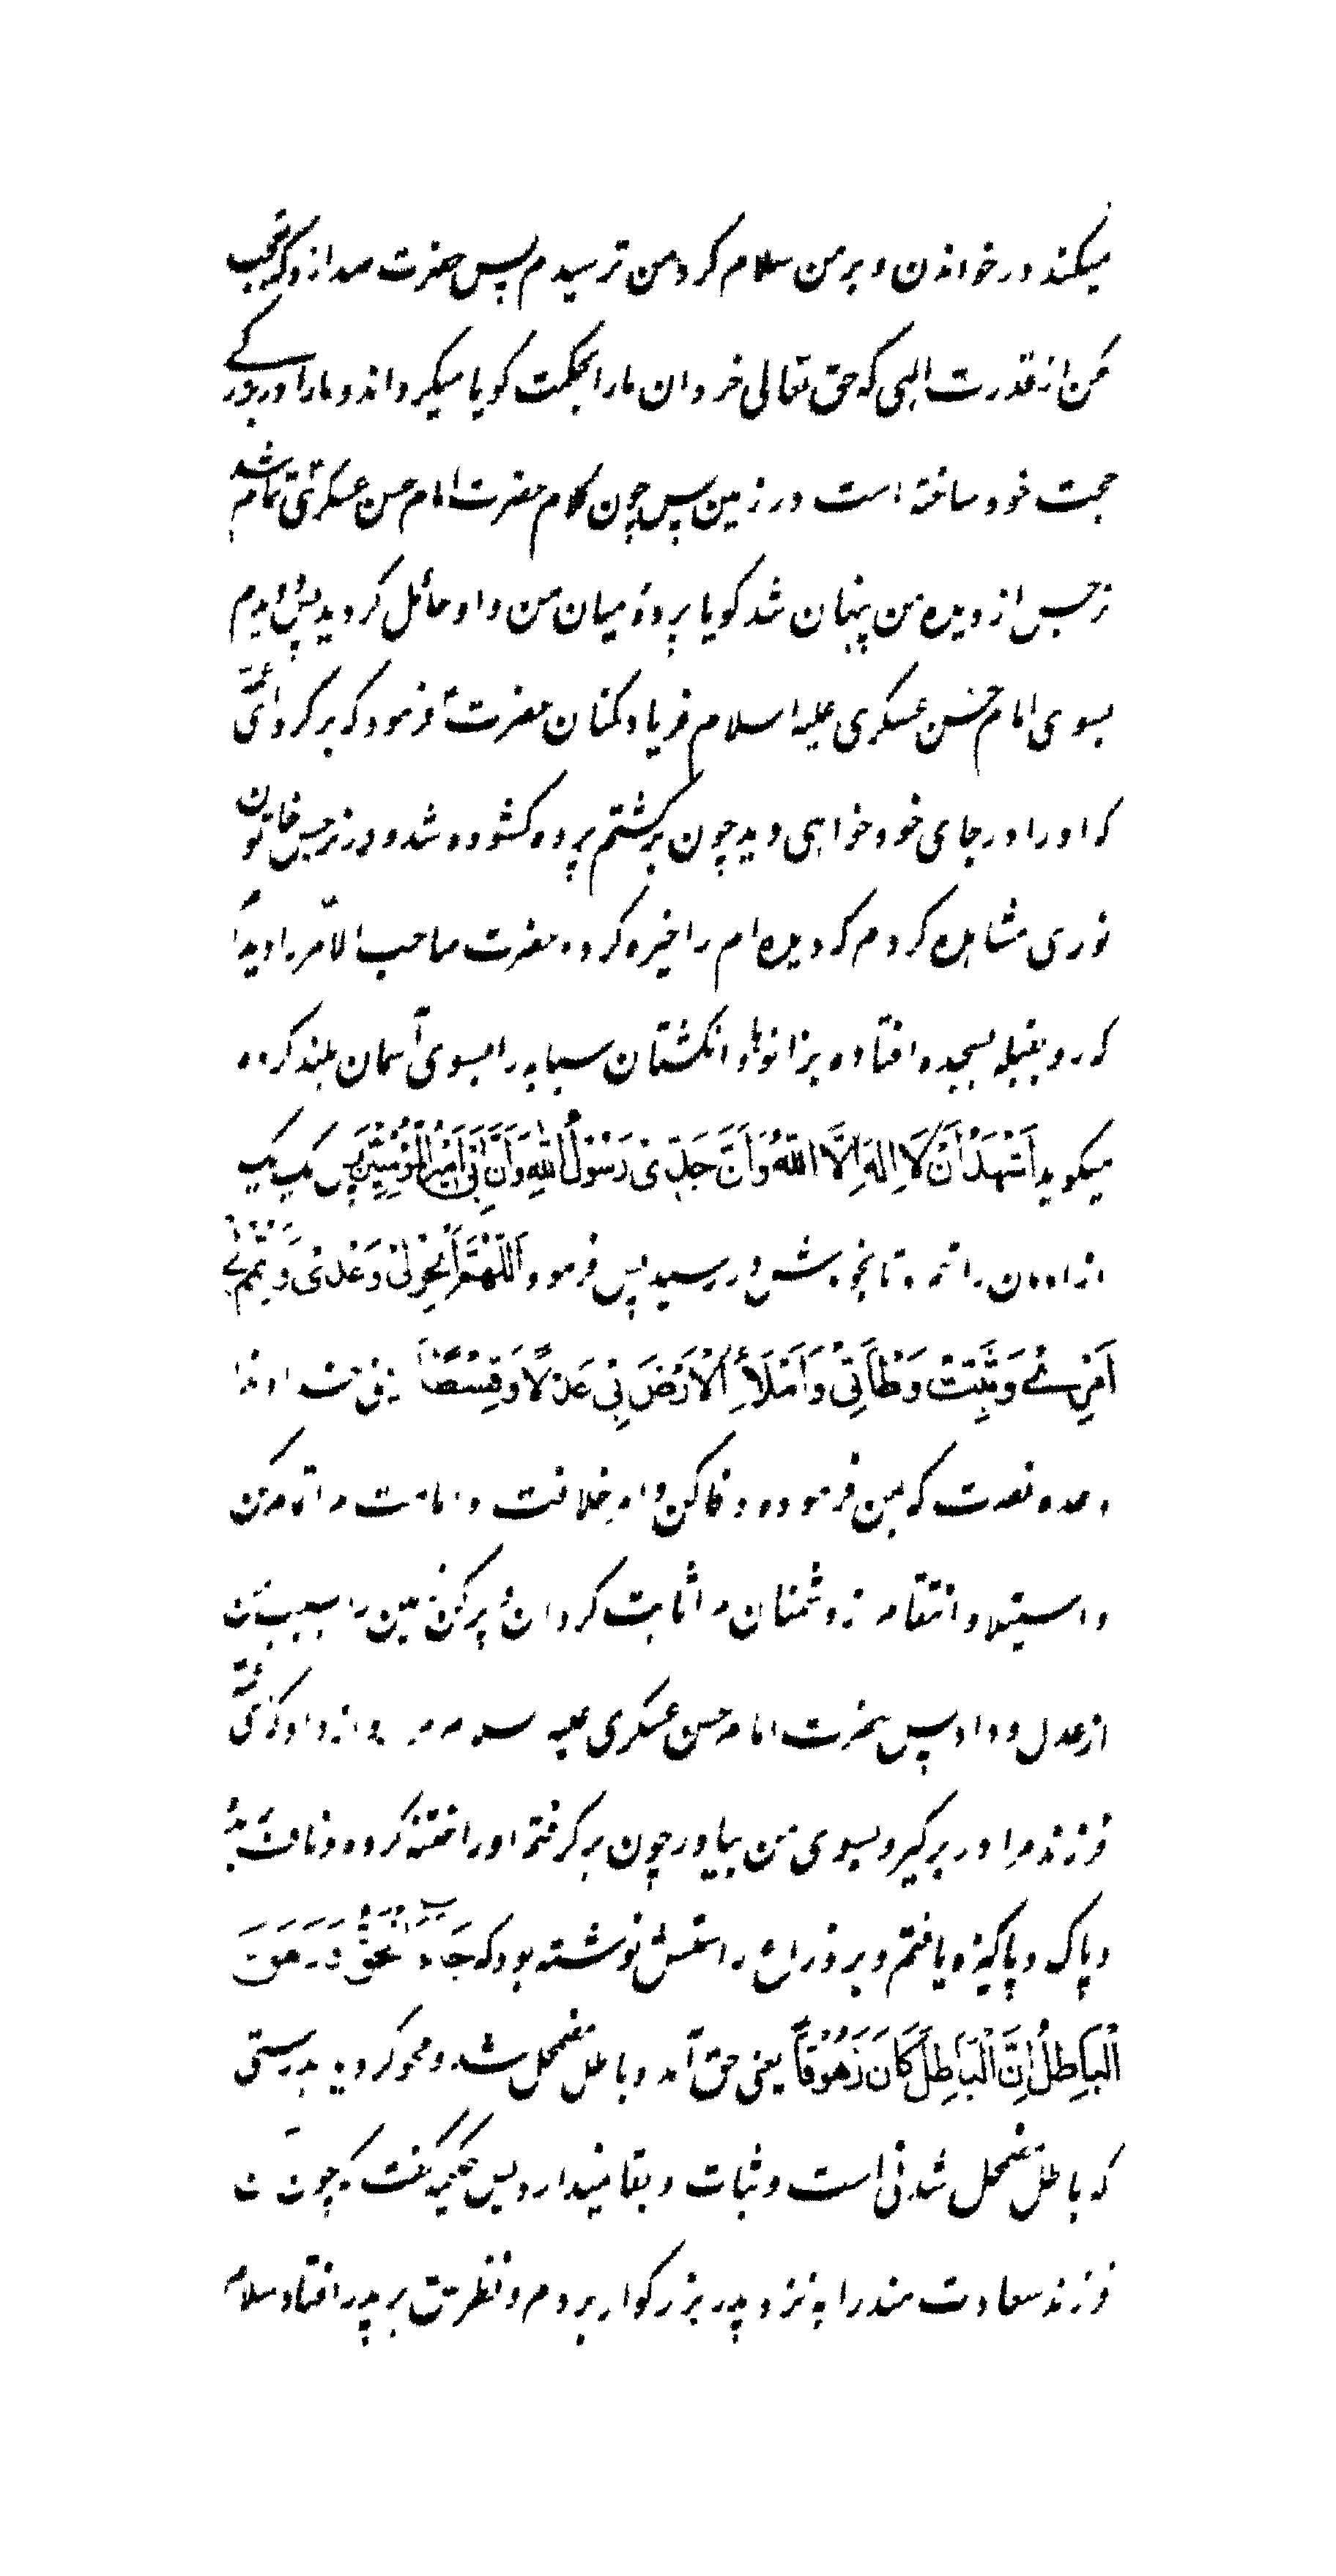 میکند در خواندن و بر من سلام کرد من ترسیدم پس حضرت صدا زد که تعجب
مکن از قدرت الهی که حق تعالی خردان ما را بحکمت کویا میکرداند و ما را در بزرکی
حجت خود ساخته است در زمین پس چون کلام حضرت امام حسن عسکری تمام شد
نرجس از دیده من پنهان شد کویا پردهٔ میان من و او حائل کردید پس دویدم
بسوی امام حسن عسکری علیه السلام فریاد کنان حضرت فرمود که بر کرد ای عمّه
که او را در جای خود خواهی دید چون برکشتم پرده کشوده شد و در نرجس خاتون
نوری مشاهده کردم که دیده ام را خیره کرد و حضرت صاحب الامر را دیدم
که رو بقبله بسجده افتاده بزانوها و انکشتان سبابه را بسوی آسمان بلند کرده
میکوید اَشْهَدُ اَنْ لَا اِلهَ اِلَّا اللّهُ وَ اَنَّ جَدّی رَسُولُ اللّهِ وَ اَنَّ اَبی اَمیرُ الْمُؤمِنینَ پس یک یک
از امامان را شمرد تا بخودش رسید پس فرمود اَللّهُمَّ اَنْجِزْلی وَعْدی وَ تَمِّمْ لی
اَمْری وَ ثَبِّتْ وَطْأَتی وَ اَمْلَأِ الْاَرْضَ بی عَدْلًا وَ قِسْطًا یعنی خداوندا
وعده نصرت که بمن فرموده وفا کن و امر خلافت و امامت مرا تمام کن
و استیلا و انتقام از دشمنان مرا ثابت کردان و پر کن زمین را بسبب من
از عدل و داد پس حضرت امام حسن عسکری علیه السلام مرا آواز داد که ای عمّه
فرزندم را در بر کیر و بسوی من بیاور چون بر کرفتم او را ختنه کرده و ناف بریده
و پاک و پاکیزه یافتم و بر ذراع راستش نوشته بود که جَاءَ الْحَقُّ وَ زَهَقَ
الْبَاطِلُ اِنَّ الْبَاطِلَ کَانَ زَهُوقًا یعنی حق آمد و باطل مضمحل شد و محو کردید بدرستی
که باطل مضمحل شدنی است و ثبات و بقا نمیدارد پس حکیمه کفت که چون آن
فرزند سعادتمند را به نزد پدر بزرکوار بردم و نظرش بر پدر افتاد سلام